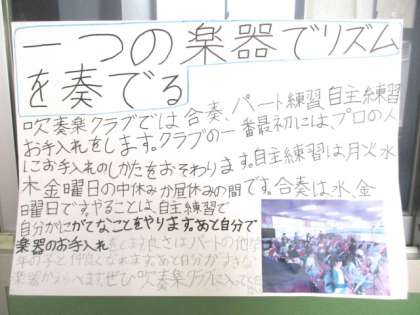 一つの楽器でリズム
を奏でる
吹奏楽クラブでは合奏、パート練習、自主練習
お手入れをします。クラブの一番最初には、プロの人
にお手入れのしかたをおそわります。自主練習は月火水
木金曜日の中休みか昼休みの間です。合奏は水、金
曜日です。やることは、自主練習で
自分がにがてなことをやります。あと自分で
楽器のお手入れ
さはパートの他学
年の子と仲良くなれます。あと自分がすきな
楽器がえらべます。ぜひ吹奏楽クラブに入って